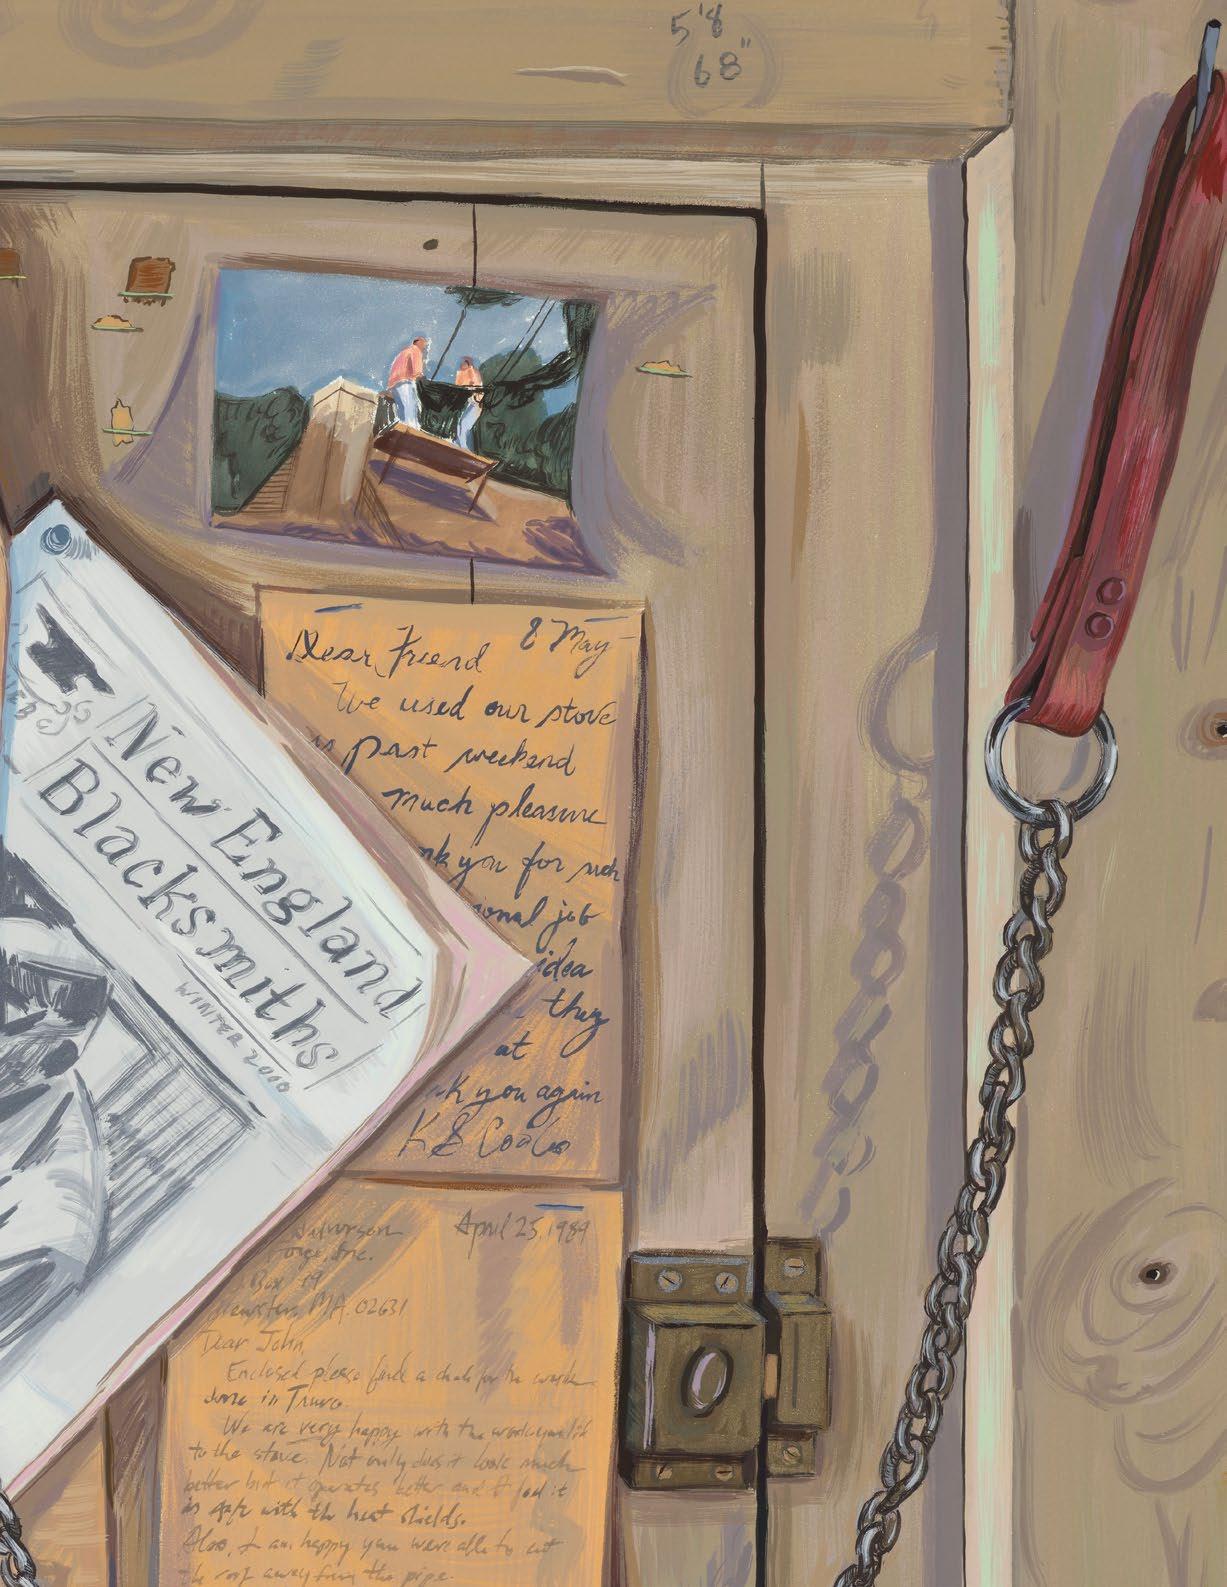 5'8
68"
New England
Blacksmiths
WINTER 2000
Dear Friend 8 May
We used our stove
past weekend
much pleasure
you for such
job
idea
they
at
you again
April 25, 1989
Inc.
Box 19
MA. 02631
Dear John,
Enclosed please find a check for the work
done in Truro.
We are very happy with the work you did
to the stove. Not only does it look much
better but it operates better and I feel it
is safe with the heat shields.
Also, I am happy you were able to cut
the roof away from the pipe.